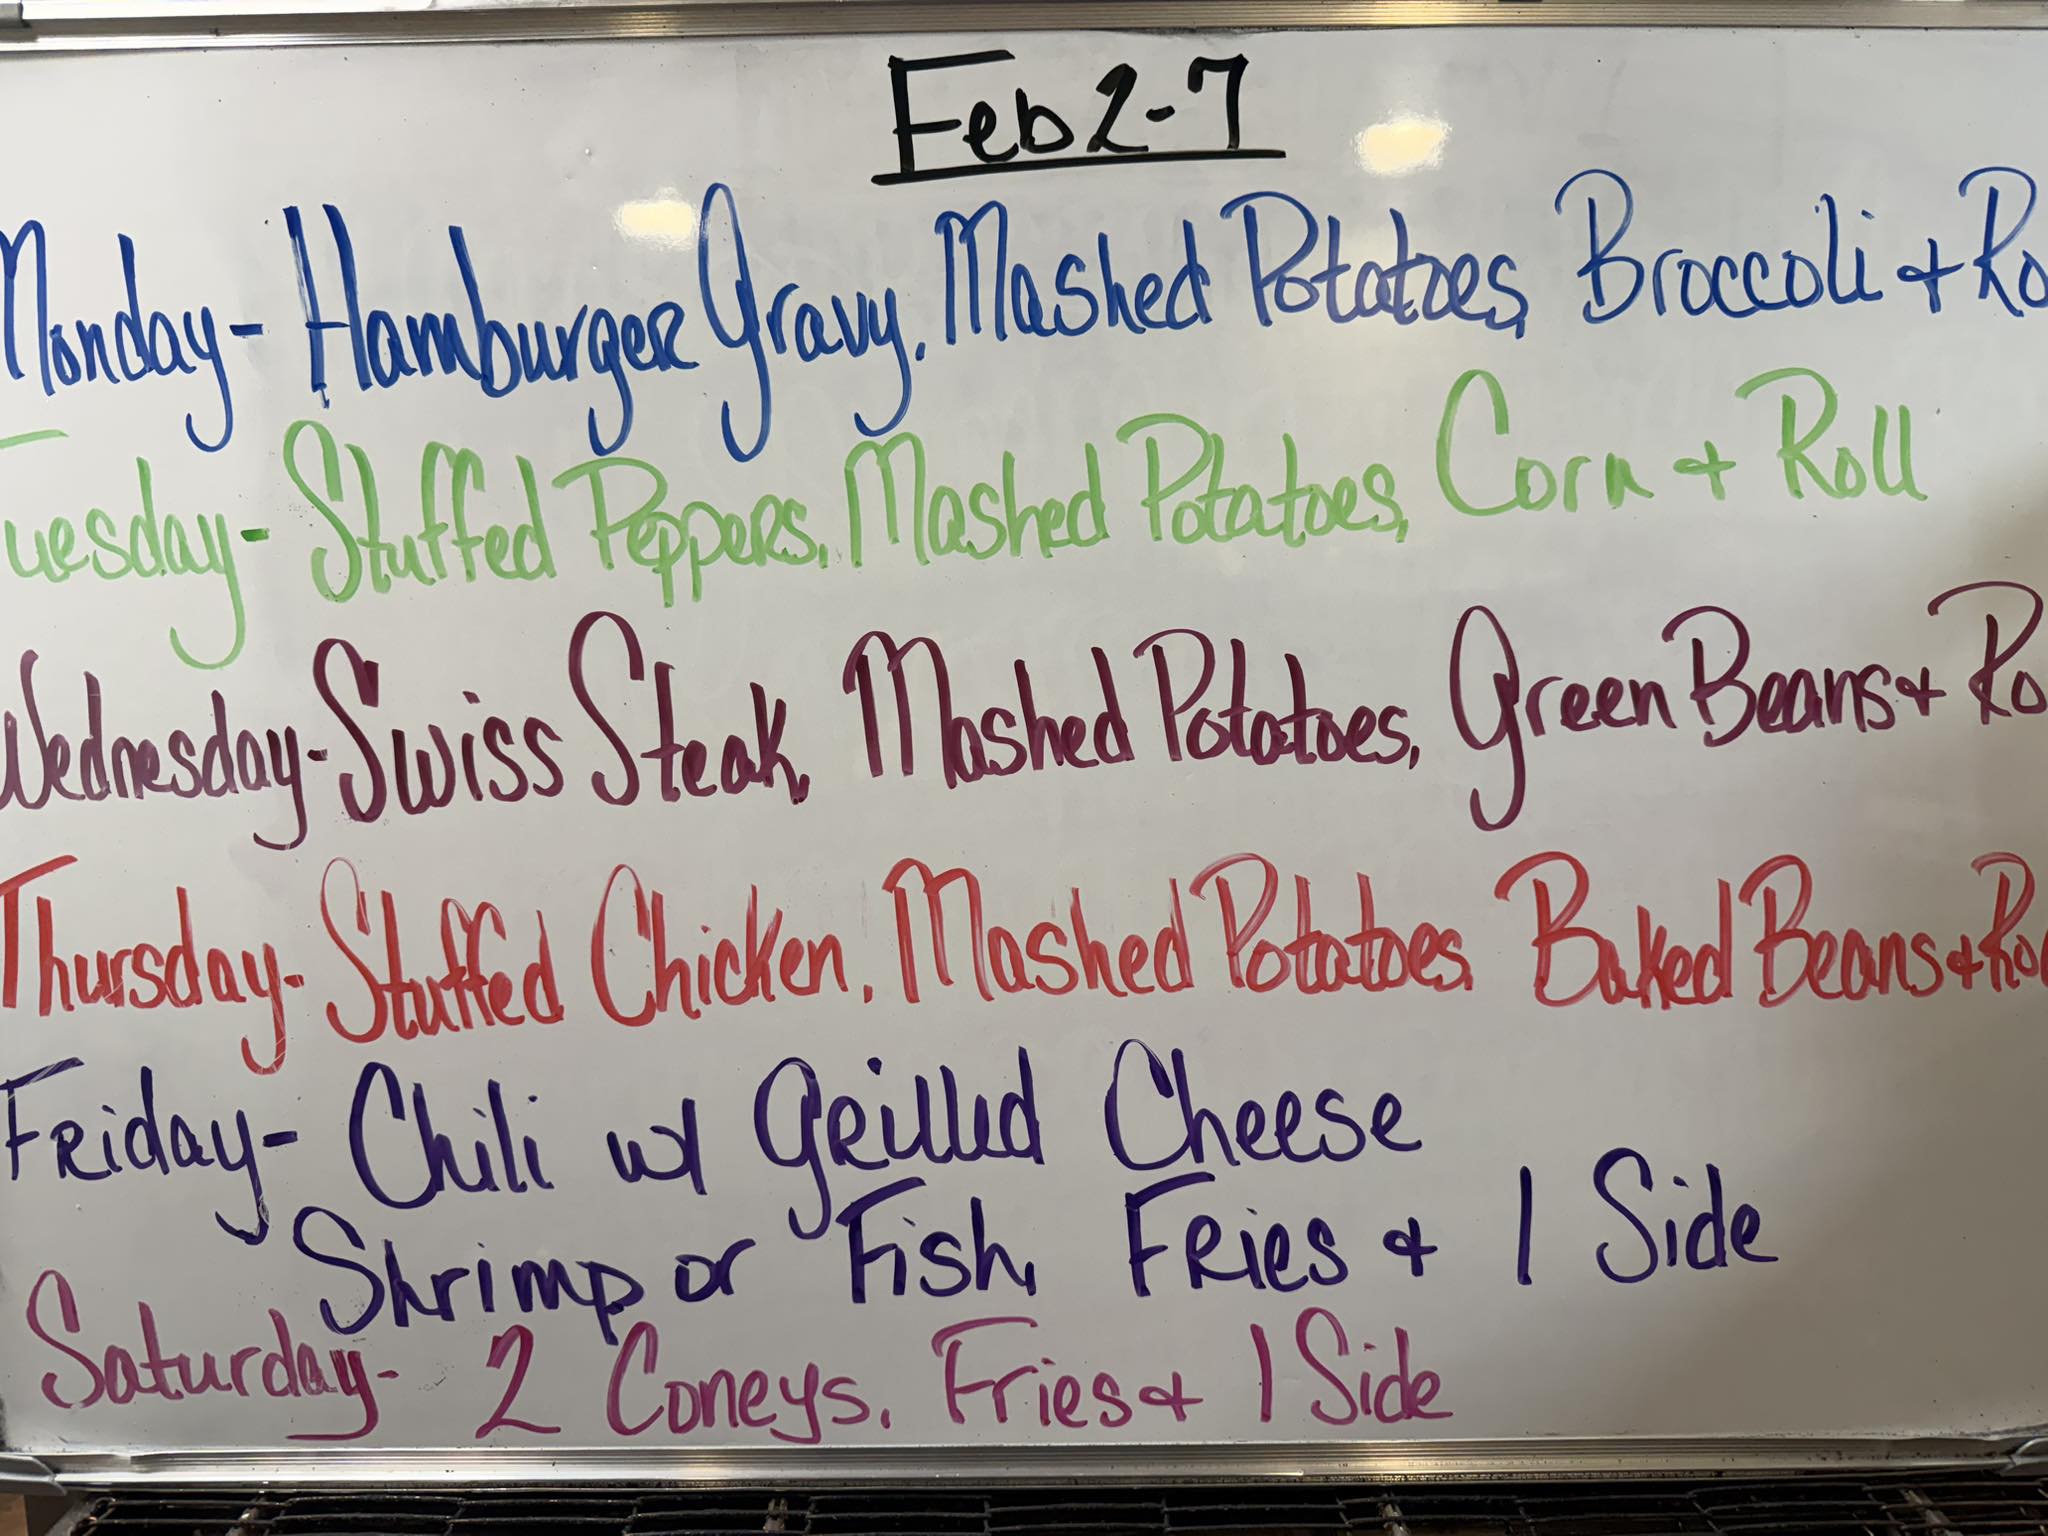 Feb 2-7
Monday- Hamburger Gravy, Mashed Potatoes, Broccoli + Ro
Tuesday- Stuffed Peppers, Mashed Potatoes, Corn + Roll
Wednesday- Swiss Steak, Mashed Potatoes, Green Beans + Ro
Thursday- Stuffed Chicken, Mashed Potatoes, Baked Beans + Rol
Friday- Chili w/ Grilled Cheese
Shrimp or Fish, Fries + 1 Side
Saturday- 2 Coneys, Fries + 1 Side